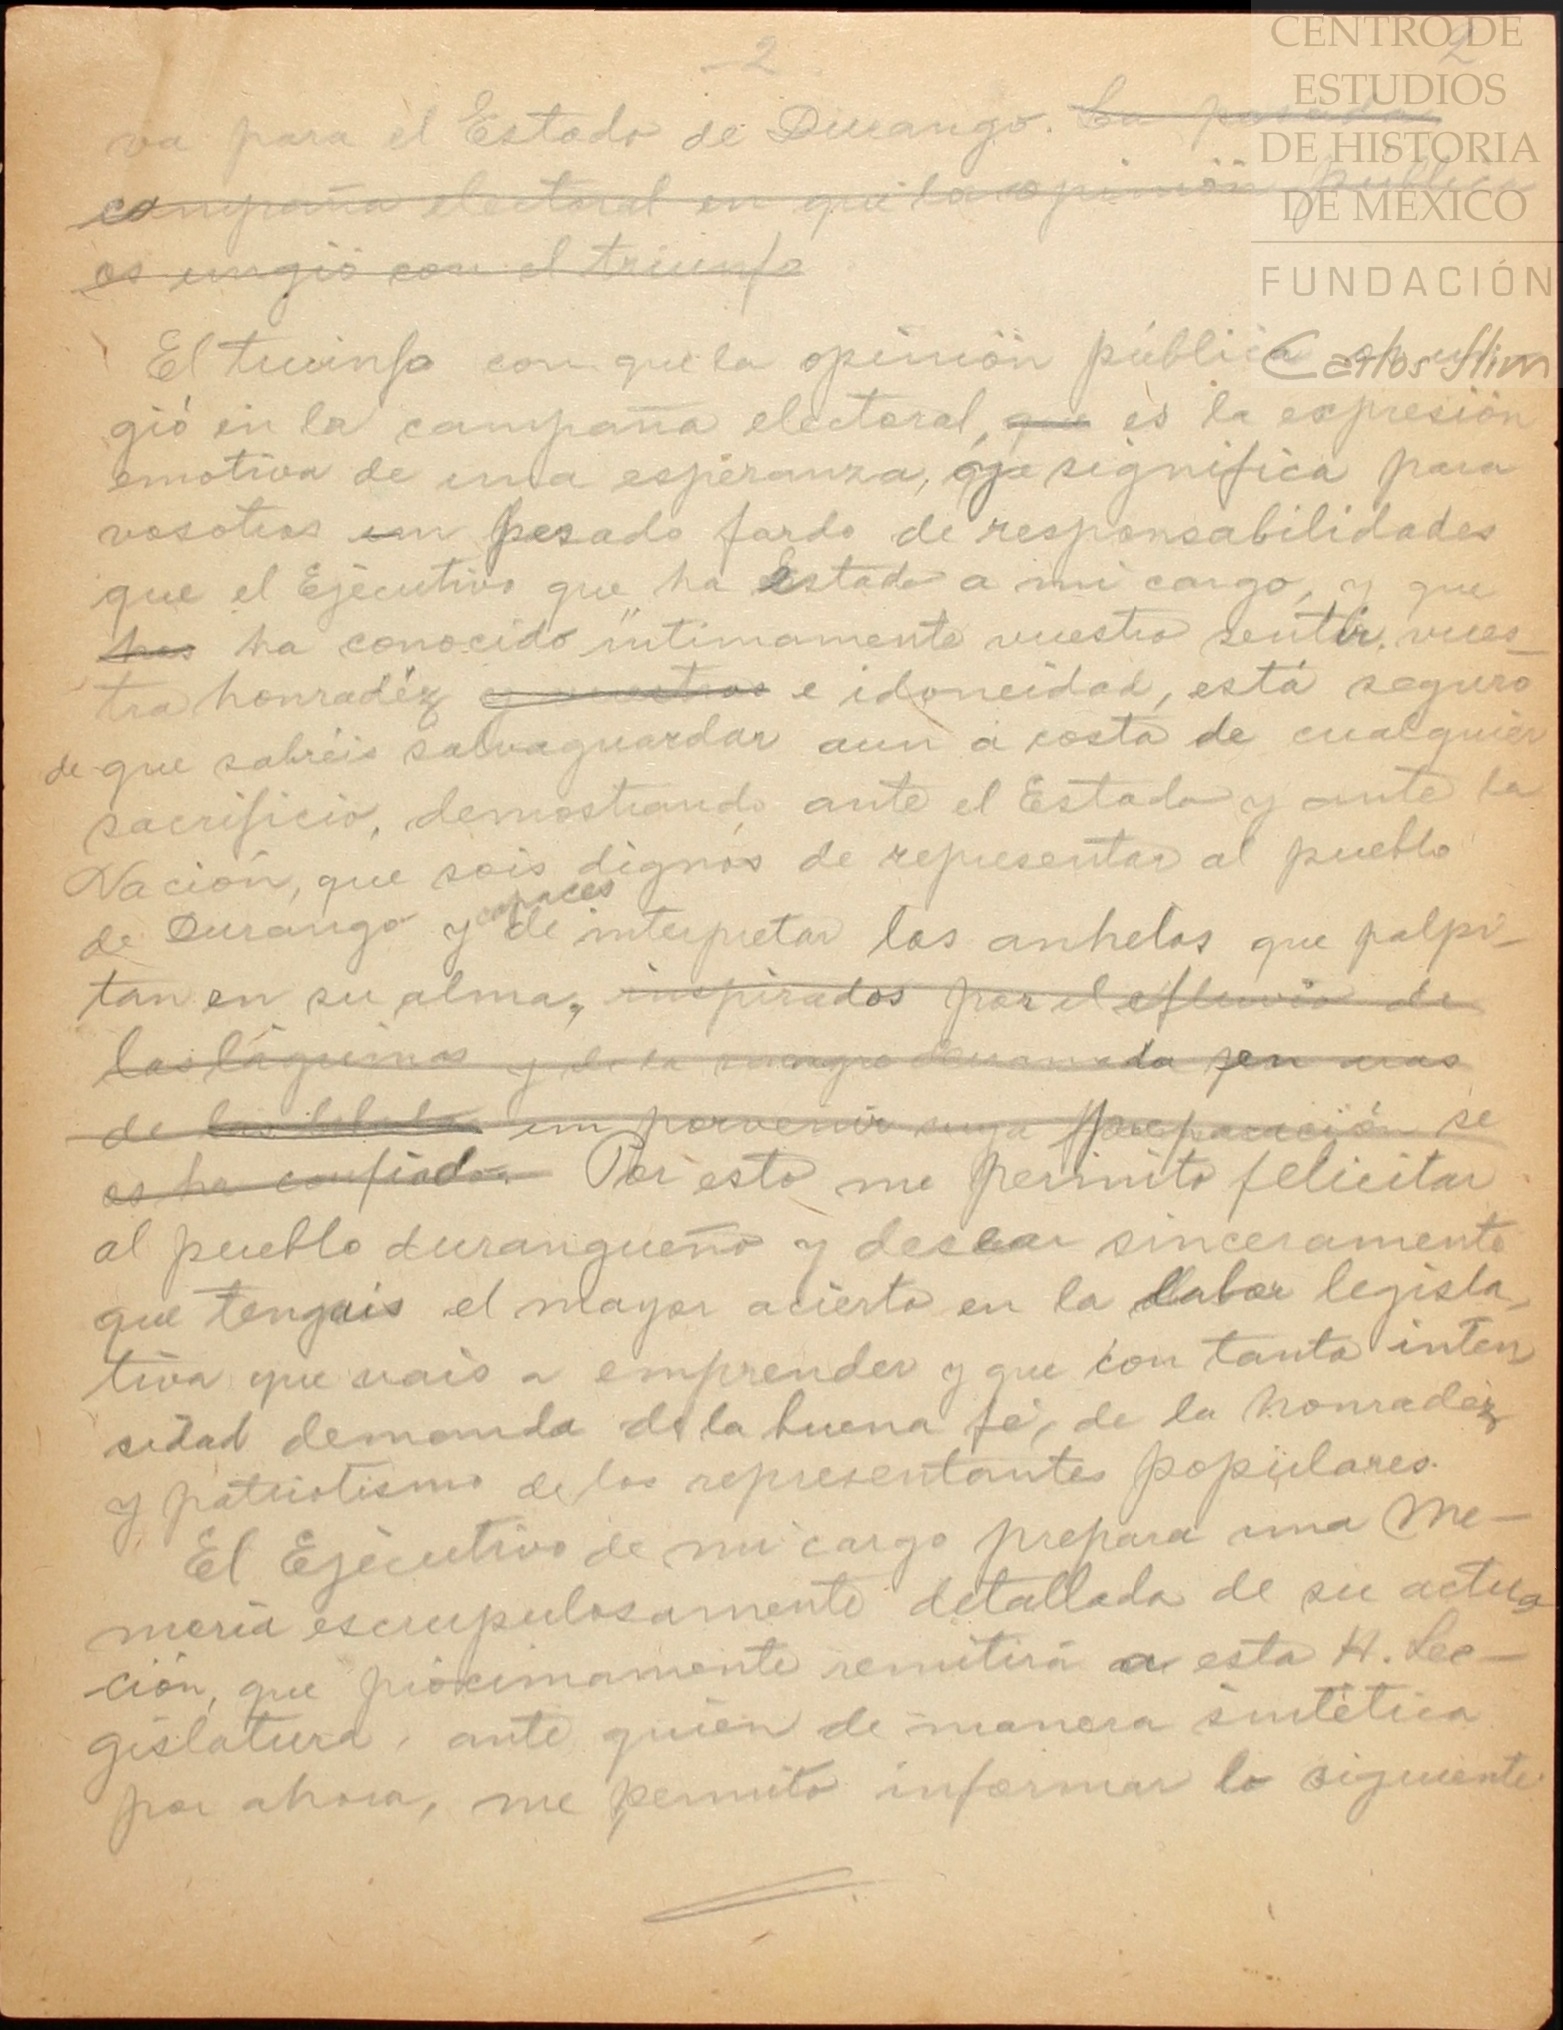 - 2
2
CENTRO DE
ESTUDIOS
DE HISTORIA
DE MÉXICO
FUNDACIÓN
Carlos Slim
va para el Estado de Durango. La pasada
campaña electoral en que la opinión pública
os ungió con el triunfo
El triunfo con que la opinión pública os un
gió en la campaña electoral, que es la expresión
emotiva de una esperanza, que significa para
vosotros un pesado fardo de responsabilidades
que el Ejecutivo que ha estado a mi cargo, y que
has ha conocido íntimamente vuestro sentir, vues-
tra honradéz y vuestros e idoneidad, está seguro
de que sabréis salvaguardar aun a costa de cualquier
sacrificio, demostrando ante el Estado y ante la
Nación, que sois dignos de representar al pueblo
de Durango y capaces de interpretar los anhelos que palpi-
tan en su alma, inspirados por el efluvio de
las lágrimas y de la sangre derramada en aras
de un porvenir cuya preparación se
os ha confiado. Por esto me permito felicitar
al pueblo durangueño y desear sinceramente
que tengais el mayor acierto en la labor legisla-
tiva que vais a emprender y que con tanta inten
sidad demanda de la buena fé, de la honradéz
y patriotismo de los representantes populares.
El Ejecutivo de mi cargo prepara una Me-
moria escrupulosamente detallada de su actua
ción, que próximamente remitirá a esta H. Le-
gislatura, ante quien de manera sintética
por ahora, me permito informar lo siguiente